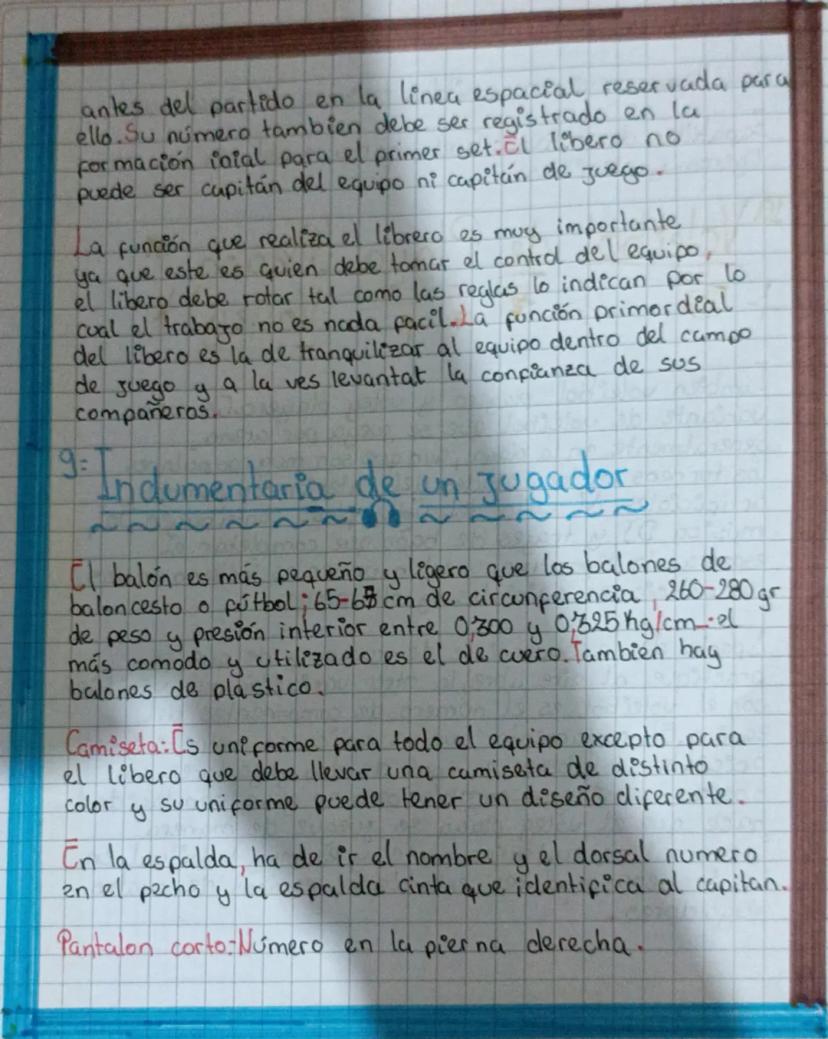 antes del partido en la línea espacial reservada para
ello. Su número tambien debe ser registrado en la
formación inial para el primer set. El libero no
puede ser capitán del equipo ni capitán de juego.
La función que realiza el librero es muy importante
ya que este es quien debe tomar el control del equipo,
el libero debe rotar tal como las reglas lo indican por lo
cual el trabajo no es nada facil. La función primordial
del libero es la de tranquilizar al equipo dentro del campo
de juego y a la ves levantat la confianza de sus
compañeros.
9: Indumentaria de un jugador
El balón es más pequeño y ligero que los balones de
baloncesto o fútbol; 65-68 cm de circunferencia, 260-280 gr
de peso y presión interior entre 0,300 y 0,325 kg/cm. el
más comodo y utilizado es el de cuero. Tambien hay
balones de plástico.
Camiseta: Es uniforme para todo el equipo excepto para
el libero que debe llevar una camiseta de distinto
color y su uniforme puede tener un diseño diferente.
En la espalda, ha de ir el nombre y el dorsal numero
en el pecho y la espalda cinta que identifica al capitan.
Pantalon corto: Número en la pierna derecha.